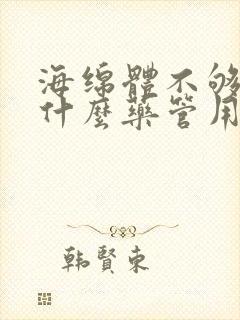 海绵體不够
什麽藥管用
韩賢東